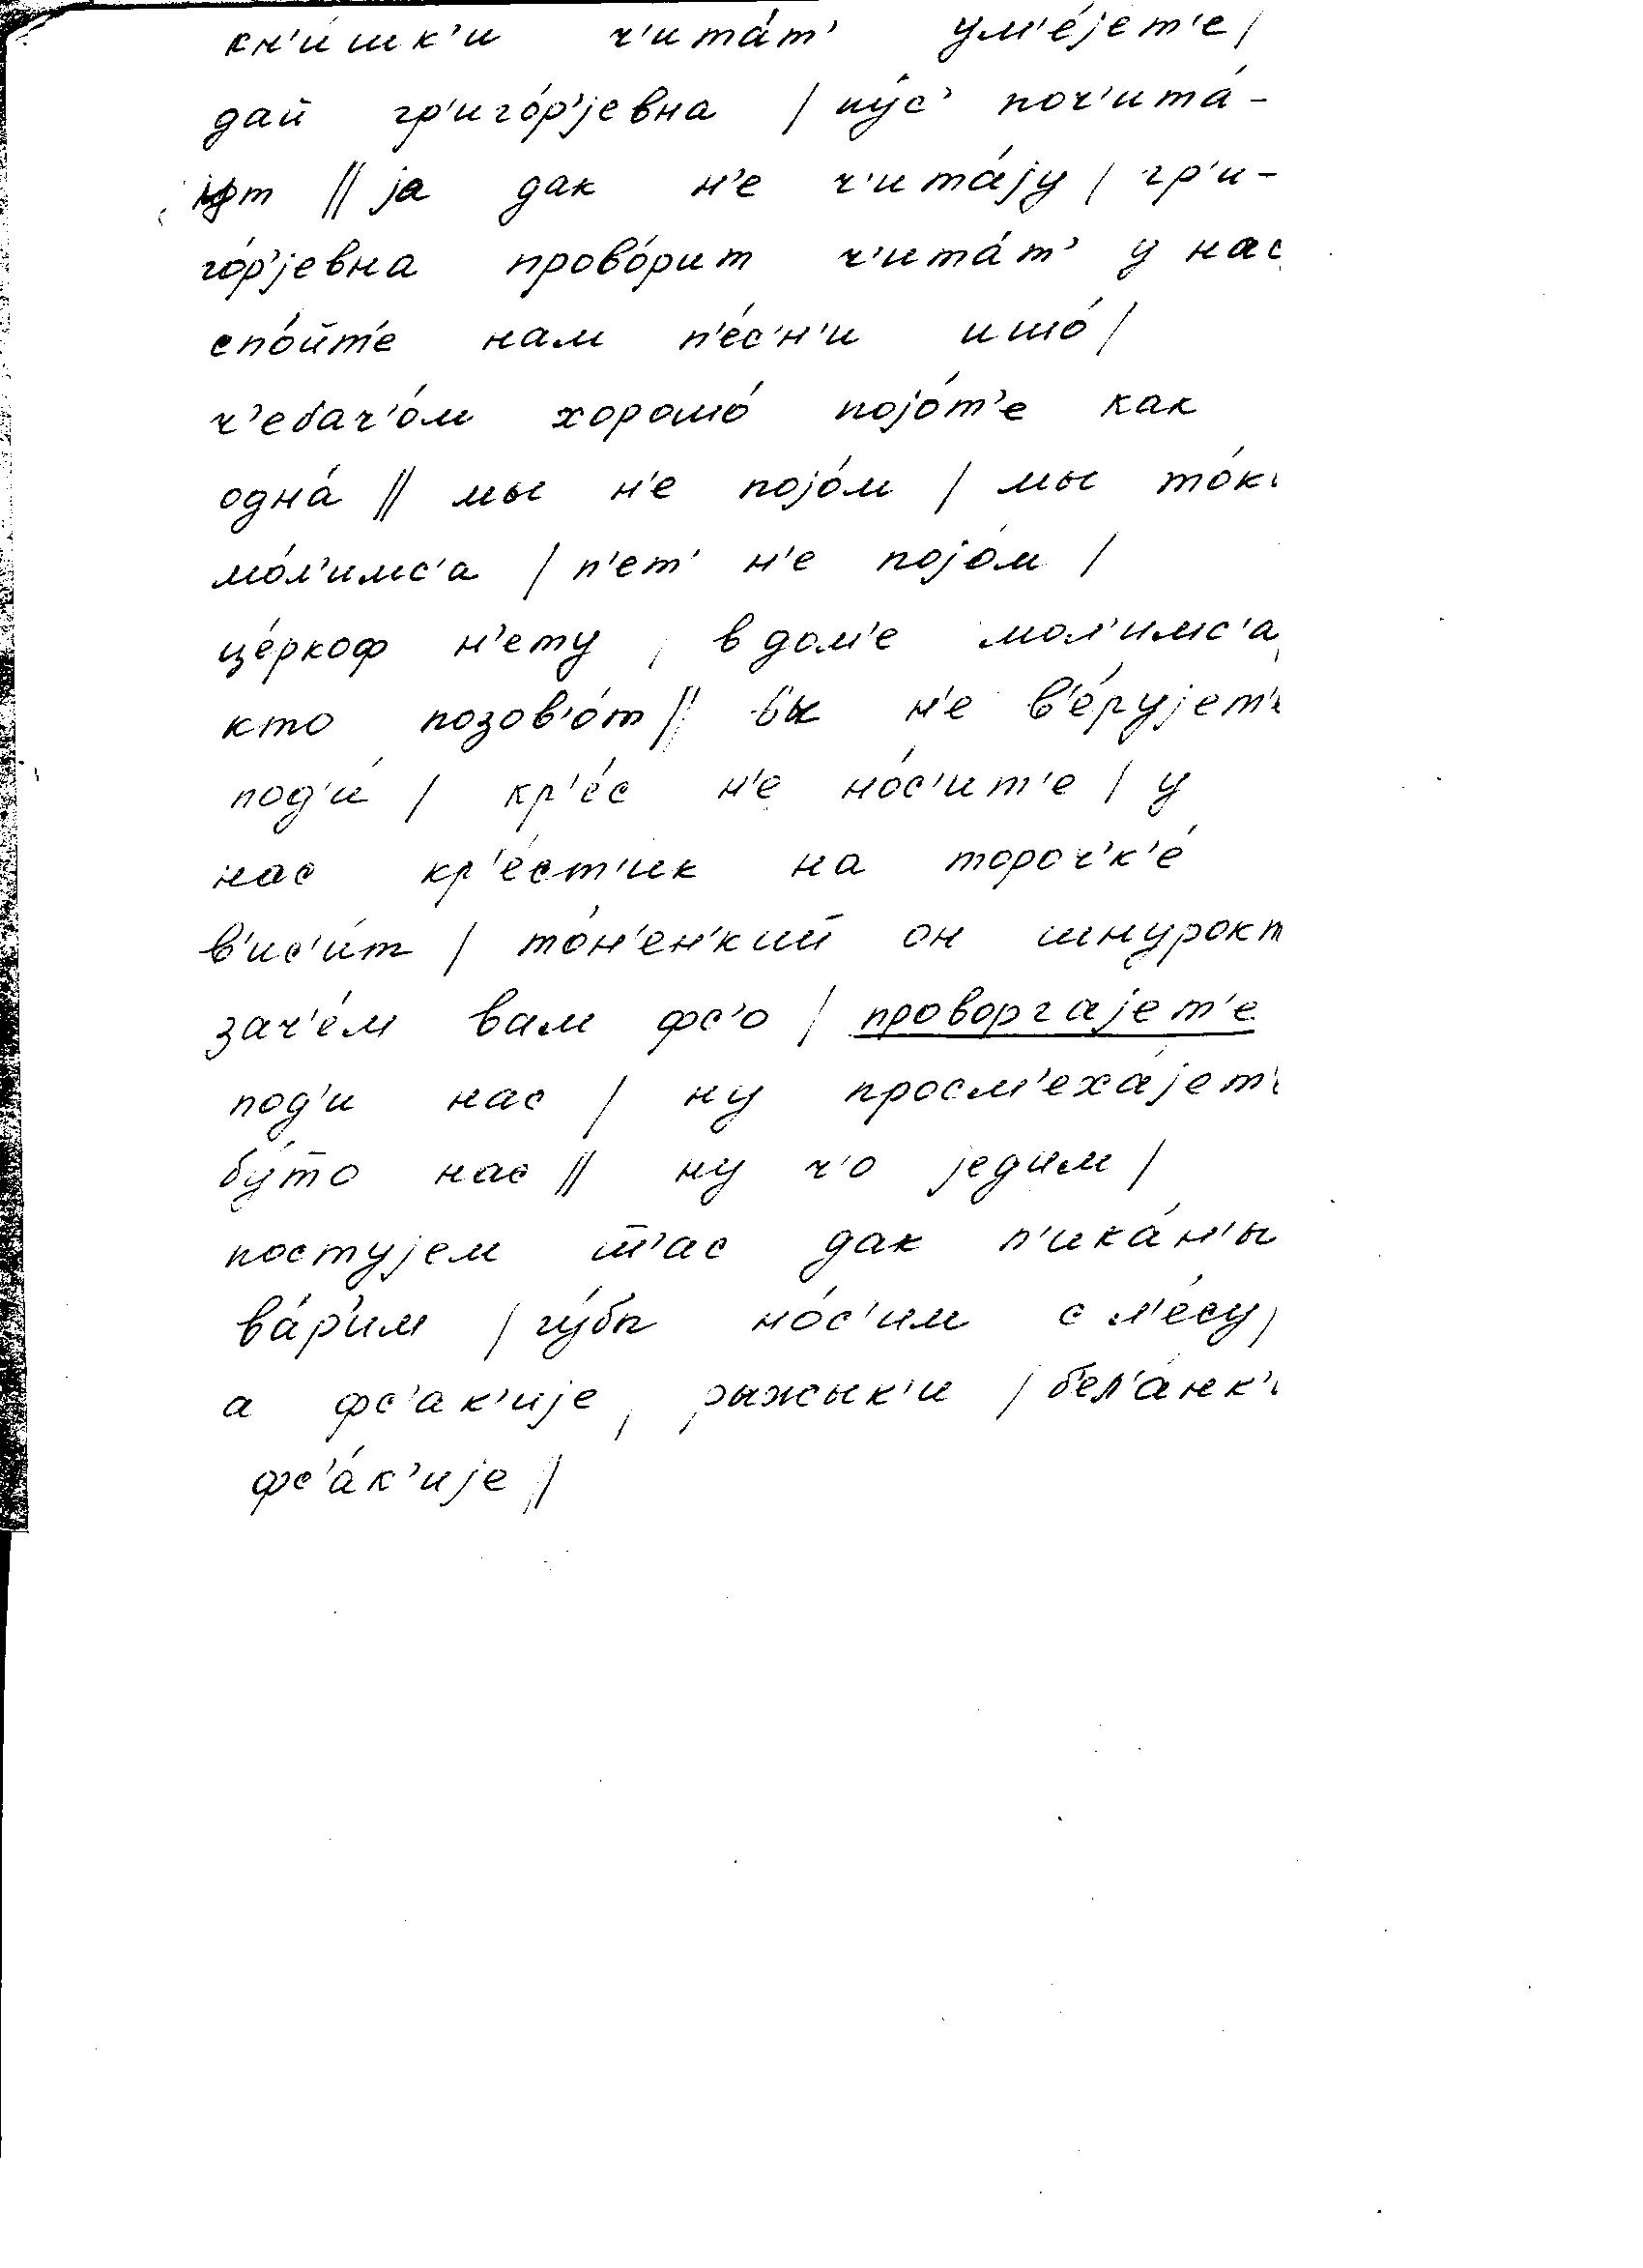 кн'и́шк'и ч'ита́т' ум'е́јет'е /
дай гр'иго́р'јевна / пу́с' поч'ита́-
јут // ја дак н'е ч'ита́ју / гр'и-
го́р'јевна прово́рит ч'ита́т' у нас
спо́йт'е нам п'е́с'н'и ишо́ /
ч'ебач'о́м хорошо́ појо́т'е как
одна́ // мы н'е појо́м / мы то́к
мо́л'имс'а / п'ет' н'е појо́м /
це́ркоф н'ету, в дом'е мол'имс'а,
кто позов'о́т // вы н'е в'е́рујет'е
под'и́ / кр'е́с н'е но́с'ит'е / у
нас кр'е́ст'ик на тороч'к'е́
в'ис'и́т / то́н'ен'кий он шнурок
зач'е́м вам фс'о / проворгајет'е
под'и нас / ну просм'еха́јет'е
бу́то нас // ну ч'о једим /
постујем т'ас дак п'ика́н'ы
ва́р'им / гу́бы но́с'им с л'е́су /
а фс'ак'ије, рыжык'и / бел'а́нк'и
фс'а́к'ије //